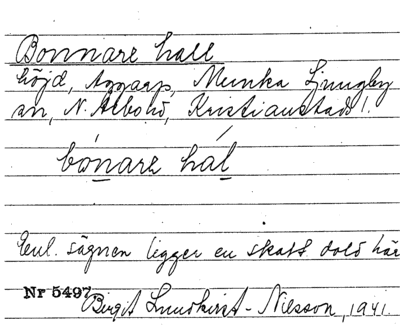 Bonnare hall
höjd, Aggarp, Munka Ljungby
sn, N. Åsbo hd, Kristianstads l.
bónare hál
Enl. sägnen ligger en skatt dold här
Nr 5497
Birgit Lundkvist-Nilsson, 1941.